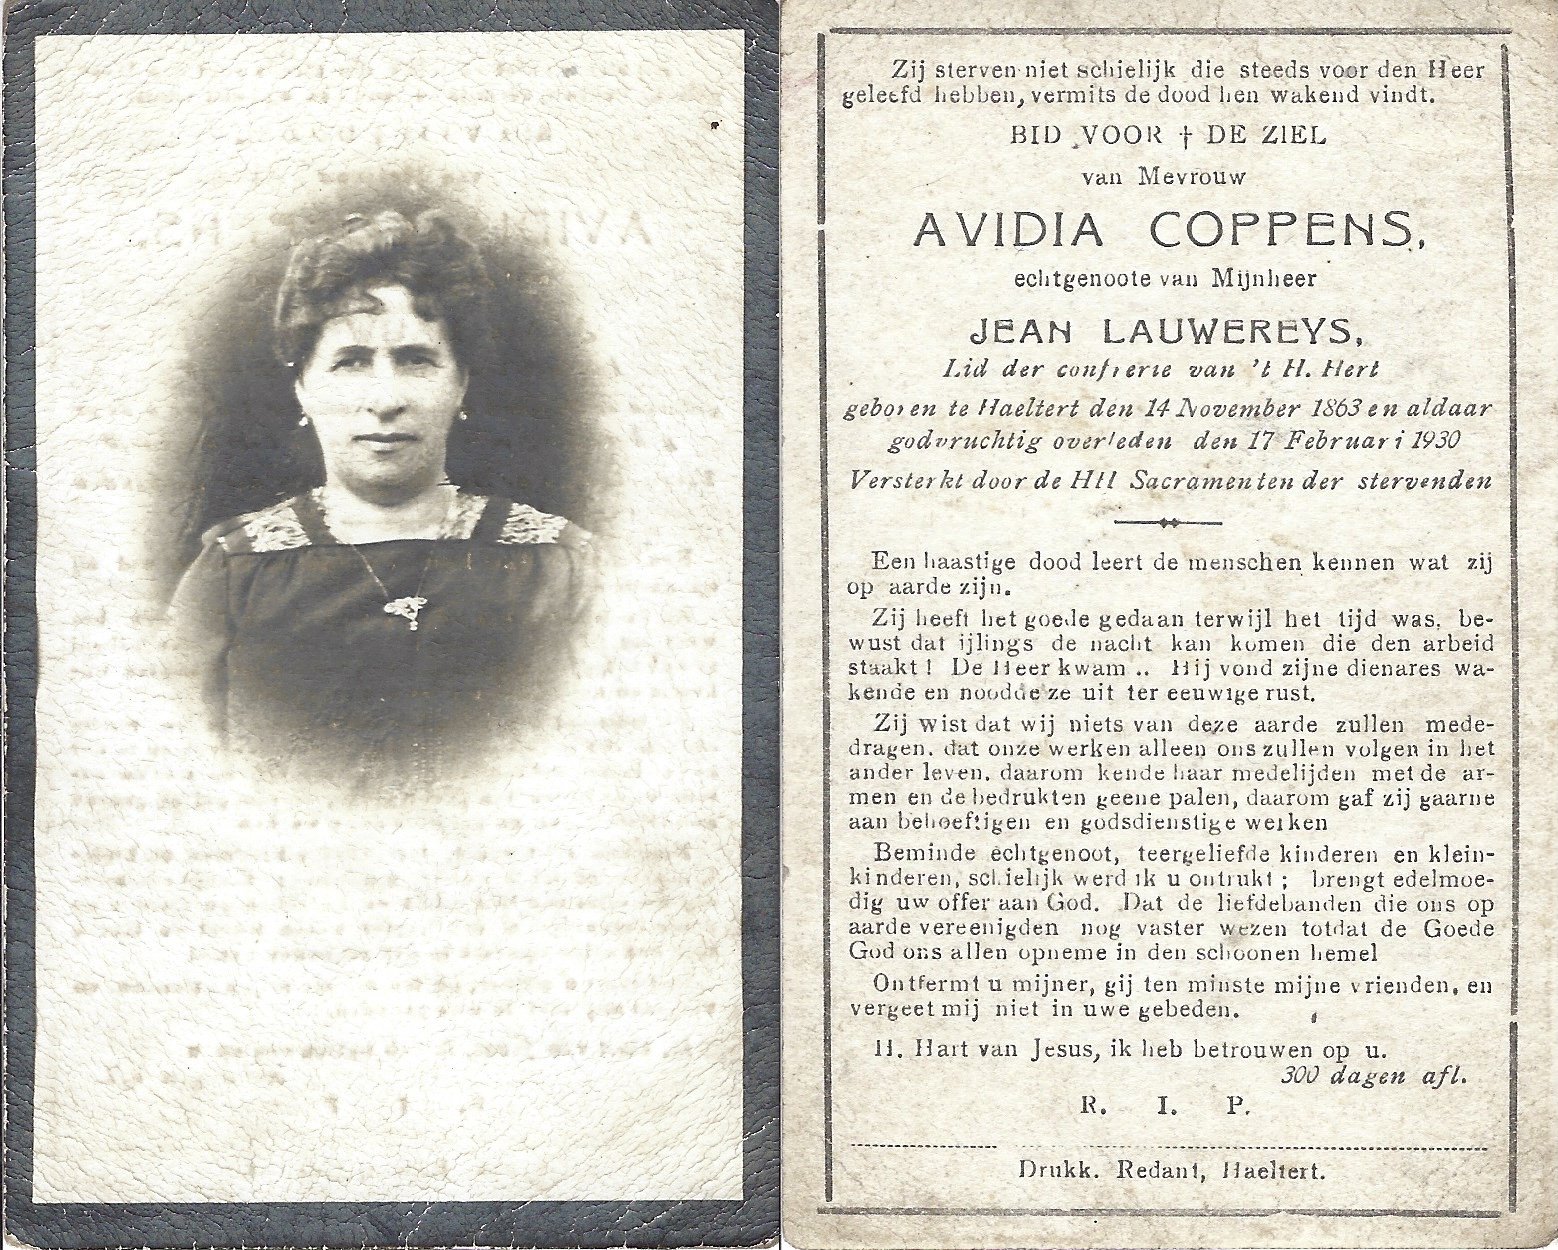 Zij sterven niet schielijk die steeds voor den Heer
geleefd hebben, vermits de dood hen wakend vindt.
BID VOOR † DE ZIEL
van Mevrouw
AVIDIA COPPENS,
echtgenoote van Mijnheer
JEAN LAUWEREYS,
Lid der confrerie van 't H. Hert
geboren te Haeltert den 14 November 1863 en aldaar
godvruchtig overleden den 17 Februari 1930
Versterkt door de HH Sacramenten der stervenden
Een haastige dood leert de menschen kennen wat zij
op aarde zijn.
Zij heeft het goede gedaan terwijl het tijd was, be-
wust dat ijlings de nacht kan komen die den arbeid
staakt! De Heer kwam .. Hij vond zijne dienares wa-
kende en noodde ze uit ter eeuwige rust.
Zij wist dat wij niets van deze aarde zullen mede-
dragen. dat onze werken alleen ons zullen volgen in het
ander leven. daarom kende haar medelijden met de ar-
men en de bedrukten geene palen, daarom gaf zij gaarne
aan behoeftigen en godsdienstige werken
Beminde echtgenoot, teergeliefde kinderen en klein-
kinderen, schielijk werd ik u ontrukt ; brengt edelmoe-
dig uw offer aan God. Dat de liefdebanden die ons op
aarde vereenigden nog vaster wezen totdat de Goede
God ons allen opneme in den schoonen hemel
Ontfermt u mijner, gij ten minste mijne vrienden, en
vergeet mij niet in uwe gebeden.
H. Hart van Jesus, ik heb betrouwen op u.
300 dagen afl.
R. I. P.
Drukk. Redant, Haeltert.